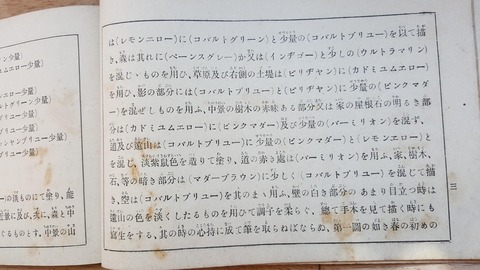 は(レモンエロー)に(コバルトグリーン)と少量の(コバルトブリユー)を以て描
き、森は其れに(ペーンスグレー)か又は(インヂゴー)と少しの(ウルトラマリン)
を混じヽものを用ひ、草原及び右側の土堤は(ビリヂヤン)に(カドミユムエロー)
を用ひ、影の部分には(コバルトブリユー)と(ビリヂヤン)に少量の(ピンクマダ
ー)を混ぜしものを用ふ、中景の樹木の赤味ある部分又は家の屋根石の明るき部
分は(カドミユムエロー)に(ピンクマダー)及び少量の(バーミリオン)を混ず、
道及び遠山は(コバルトブリユー)に少量の(ピンクマダー)と(レモンエロー)と
を混じ、淡紫鼠色を造りて塗り、道の赤き處は(バーミリオン)を用ふ、家、樹木、
石、等の暗き部分は(マダーブラウン)に少しく(コバルトブリユー)を混じて描
き、空は(コバルトブリユー)を其のまヽ用ふ、壁の白き部分のあまり目立つ時は
遠山の色を淡くしたるものを用ひて調子を柔らぐ、總て手本を見て描く時にも
寫生をする、其の時の心持に成て筆を取らねばならぬ、第一圖の如き春の初めの
三
ン少量)
ムエロー少量)
ブリユー少量)
ルトグリーン少量)
ブリユー少量)
ブリユー少量)
ツシヤンブリユー少量)
ブリユー少量)
ー)の淡ものにて塗り、能
近景に及び、次に、森と中
ぐるものとす。中景の山